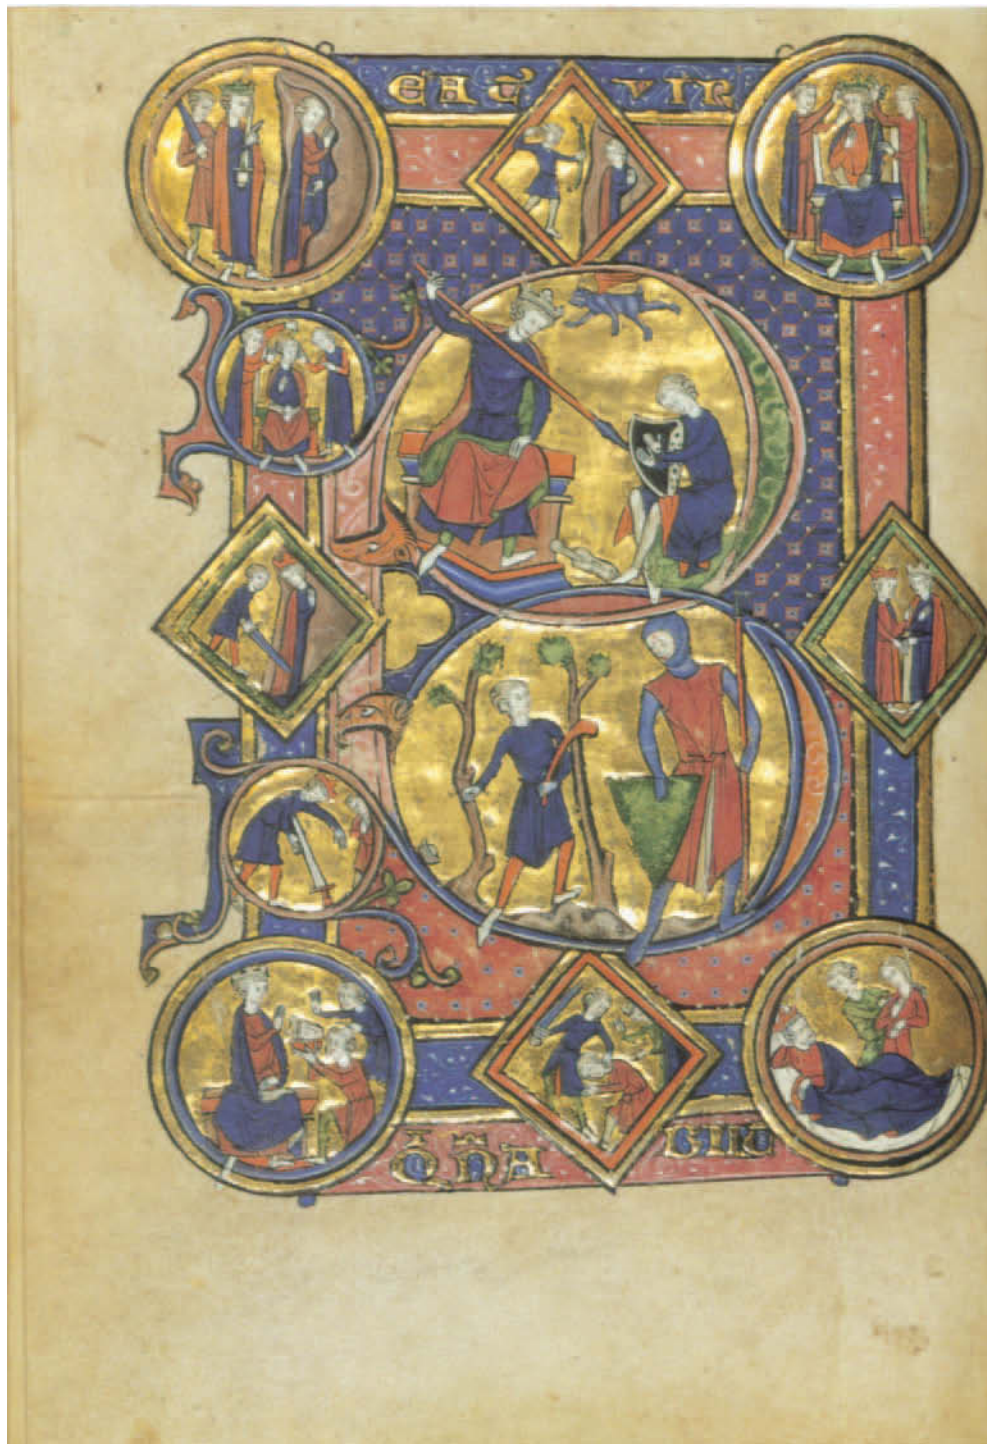 B
EAT᷒ VIR
Qͥ N̄ A BIIT